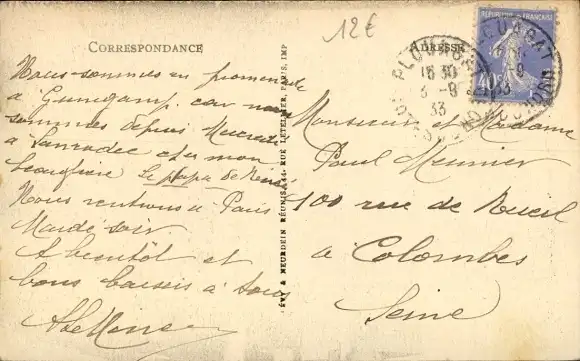 12€
CORRESPONDANCE
ADRESSE
RÉPUBLIQUE FRANÇAISE
40c
PLOUAGAT
15 30
3 - 8
33
CÔTES DU NORD
Nous sommes en promenade
à Guingamp, car nous
sommes depuis Mercredi
à Lanrodec chez mon
beau frère Le papa de
Nous rentrons à Paris
Mardi soir.
A bientôt et
bons baisers à tous
LÉVY & NEURDEIN RÉUNIS, 44, RUE LETELLIER, PARIS, IMP
Monsieur et Madame
Paul Meunier
100 rue de Rueil
à Colombes
Seine